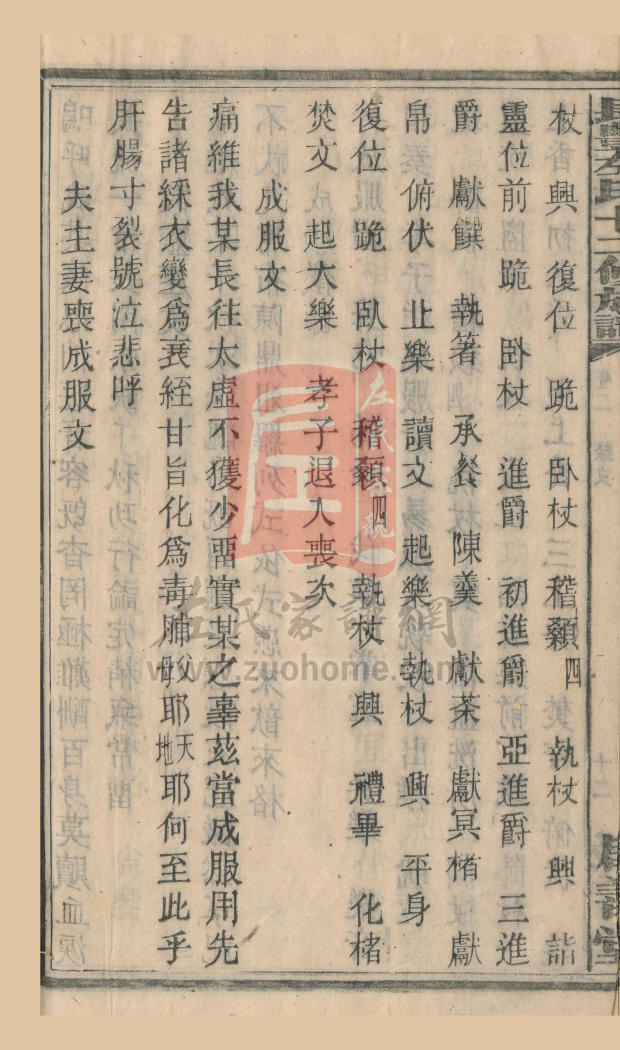 杖 興 復位 跪 卧杖 稽顙四 執杖 興 詣
靈位前 跪 卧杖 進爵 初進爵 亞進爵 三進
爵 獻饌 執箸 承餐 陳羹 獻茶 獻冥楮 獻
帛 俯伏 止樂 讀文 起樂 執杖 興 平身
復位 跪 卧杖 稽顙四 執杖 興 禮畢 化楮
焚文 起大樂 孝子退入喪次
成服文
痛維我某長往太虛不獲少留實某之辜茲當成服用先
告諸綵衣變爲衰絰甘旨化爲毒脯父母耶天地耶何至此乎
肝腸寸裂號泣悲呼
夫主妻喪成服文
左氏家譜網
www.zuohome.com